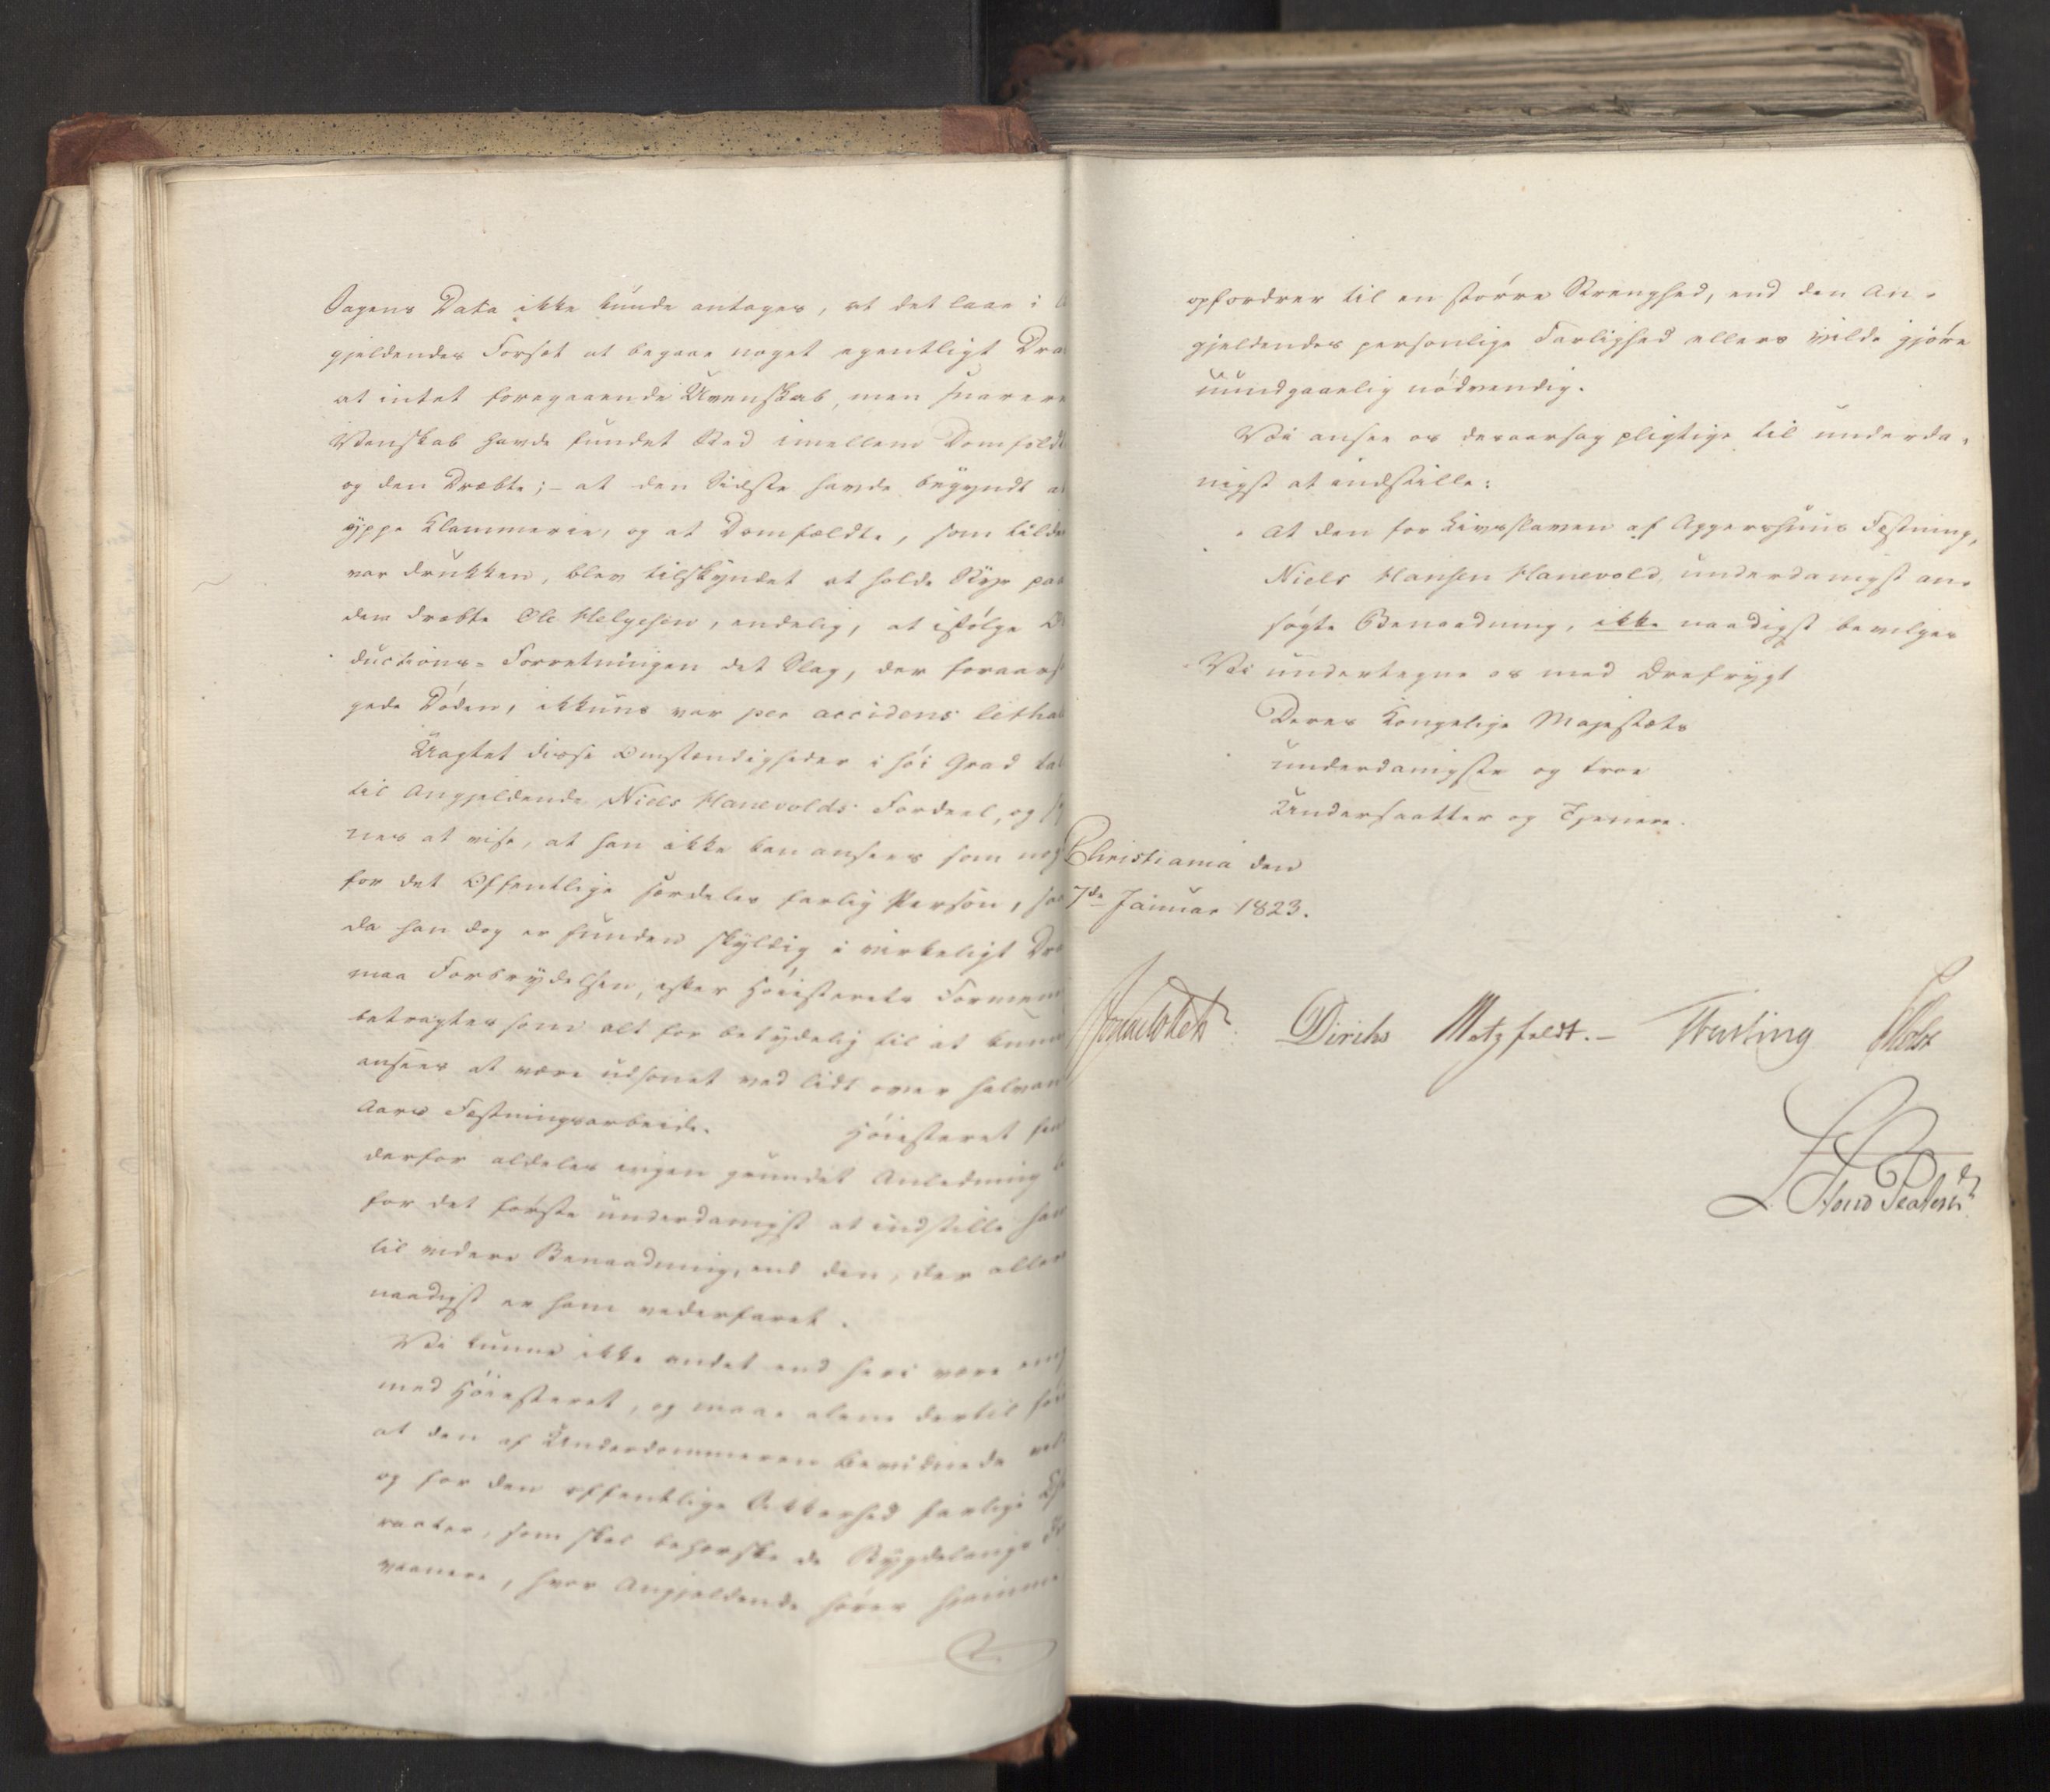 Sagens Data ikke kunde antages, at det laae i
gjeldendes Forsæt at begaae noget egentligt
at intet foregaaende Uvenskab, men snarere
Venskab havde fundet Sted imellem Domfældt
og den Dræbte; - at den Sidste havde begyndt
yppe Klammerie, og at Domfældte, som
var drukken, blev tilskyndet at holde paa
den dræbte Ole Helgesen, endelig, at ifølge
ductions-Forretningen det Slag, der foraarsa
gede Døden, ikkuns var per accidens lethal
Uagtet disse Omstændigheder i høi Grad
til Angjeldende Niels Hanevolds Fordeel, og sy
nes at vise, at han ikke kan ansees som
for det Offentlige særdeles farlig Person, saa
da han dog er funden skyldig i virkeligt
maa Forbrydelsen, efter Høiesterets Formen
betragtes som alt for betydelig til at kunne
ansees at være udsonet ved lidt over halvan
Aars Fæstningsarbeide. Høiesteret
derfor aldeles ingen grundet Anledning
for det første underdanigst at indstille ham
til videre Benaadning, end den, der aller
naadigst er ham vederfaret.
Vi kunne ikke andet end heri være enig
med Høiesteret, og maae alene dertil føie
at den af Underdommeren bevidnede
og for den offentlige Sikkerhed farlige
racter, som skal beherske de
vaanere, hvor Angjeldende hører hjemme
opfordrer til en større Strenghed, end den An-
gjeldendes personlige Farlighed ellers vilde gjøre
uundgaaelig nødvendig.
Vi ansee os desaarsag pligtige til underda-
nigst at indstille:
At den for Livsslaven af Aggershuus Fæstning,
Niels Hansen Hanevold, underdanigst an-
søgte Benaadning, ikke naadigst bevilges
Vi undertegne os med Ærefrygt
Deres Kongelige Majestæts
underdanigste og troe
Undersaatter og Tjenere.
Christiania den
7de Januar 1823.
Diriks Motzfeldt. Treschow